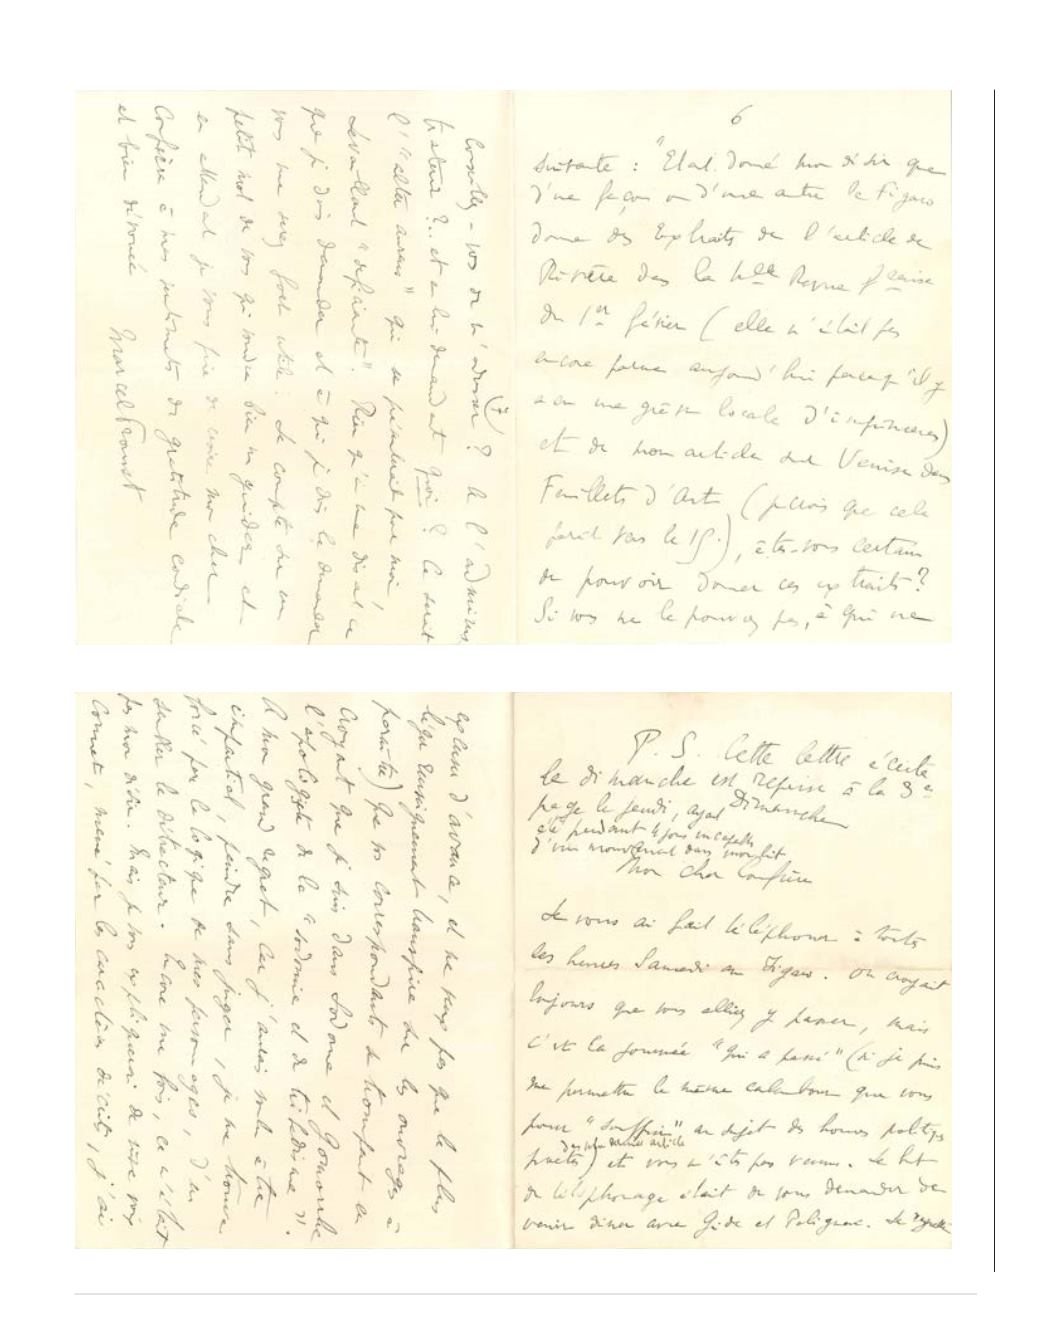 6
suivante : "Etant donné mon désir que
d'une façon ou d'une autre le Figaro
donne des Extraits de l'article de
Rivière dans la Nlle Revue fçaise
du 1er février (elle n'était pas
encore parue aujourd'hui parce qu'il y
a eu une grève locale d'imprimeres)
et de mon article sur Venise dans
Feuillets d'Art (je crois que cela
paraît vers le 15.), êtes-vous certain
de pouvoir donner ces extraits ?
Si vous ne le pouvez pas, à qui me
Conseillez-vous de m'adresser ? A l'adminis
(7)
trateur ?.. et en lui demandant quoi ? Ce serait
l' "alter" qui se
"défaillante". Rien qu'en me disant ce
que je dois demander et à qui je dois le demander
vous me serez fort utile. Je compte sur un
petit mot de vous qui voudra bien me guider et
en attendant je vous prie de croire mon cher
Confrère à mes sentiments de gratitude cordiale
et bien dévouée
Marcel Proust
P. S. Cette lettre écrite
le dimanche est reprise à la 3e
page le jeudi, ayant
été pendant 4 jours incapable
d'un mouvement dans mon lit
Dimanche
Mon cher Confrère
Je vous ai fait téléphoner à toutes
les heures Samedi au Figaro. On croyait
toujours que vous alliez y passer, mais
c'est la journée "qui a passé" (si je puis
me permettre le même calembour que vous
pour "souffrir" au sujet des hommes politiqs
dans votre dernier article
poètes) et vous n'êtes pas venu. Le but
du téléphonage était de vous demander de
venir dîner avec Gide et Polignac. Je regrette
d'avance, et ne veux pas que le plus
transpire sur les ouvrages à
paraître) que vos correspondants se trompent en
croyant que je suis dans Sodome et Gomorrhe
l'apologiste de la "sodomie et de".
A mon grand regret, car j'aurais voulu être
impartial, peindre sans juger, je me trouve
forcé par la logique de mes personnages, d'en
sembler le détracteur. Encore une fois, ce n'était
pas mon désir. Mais je vous expliquerai de vive voix
comment, mené par les caractères décrits, j'ai